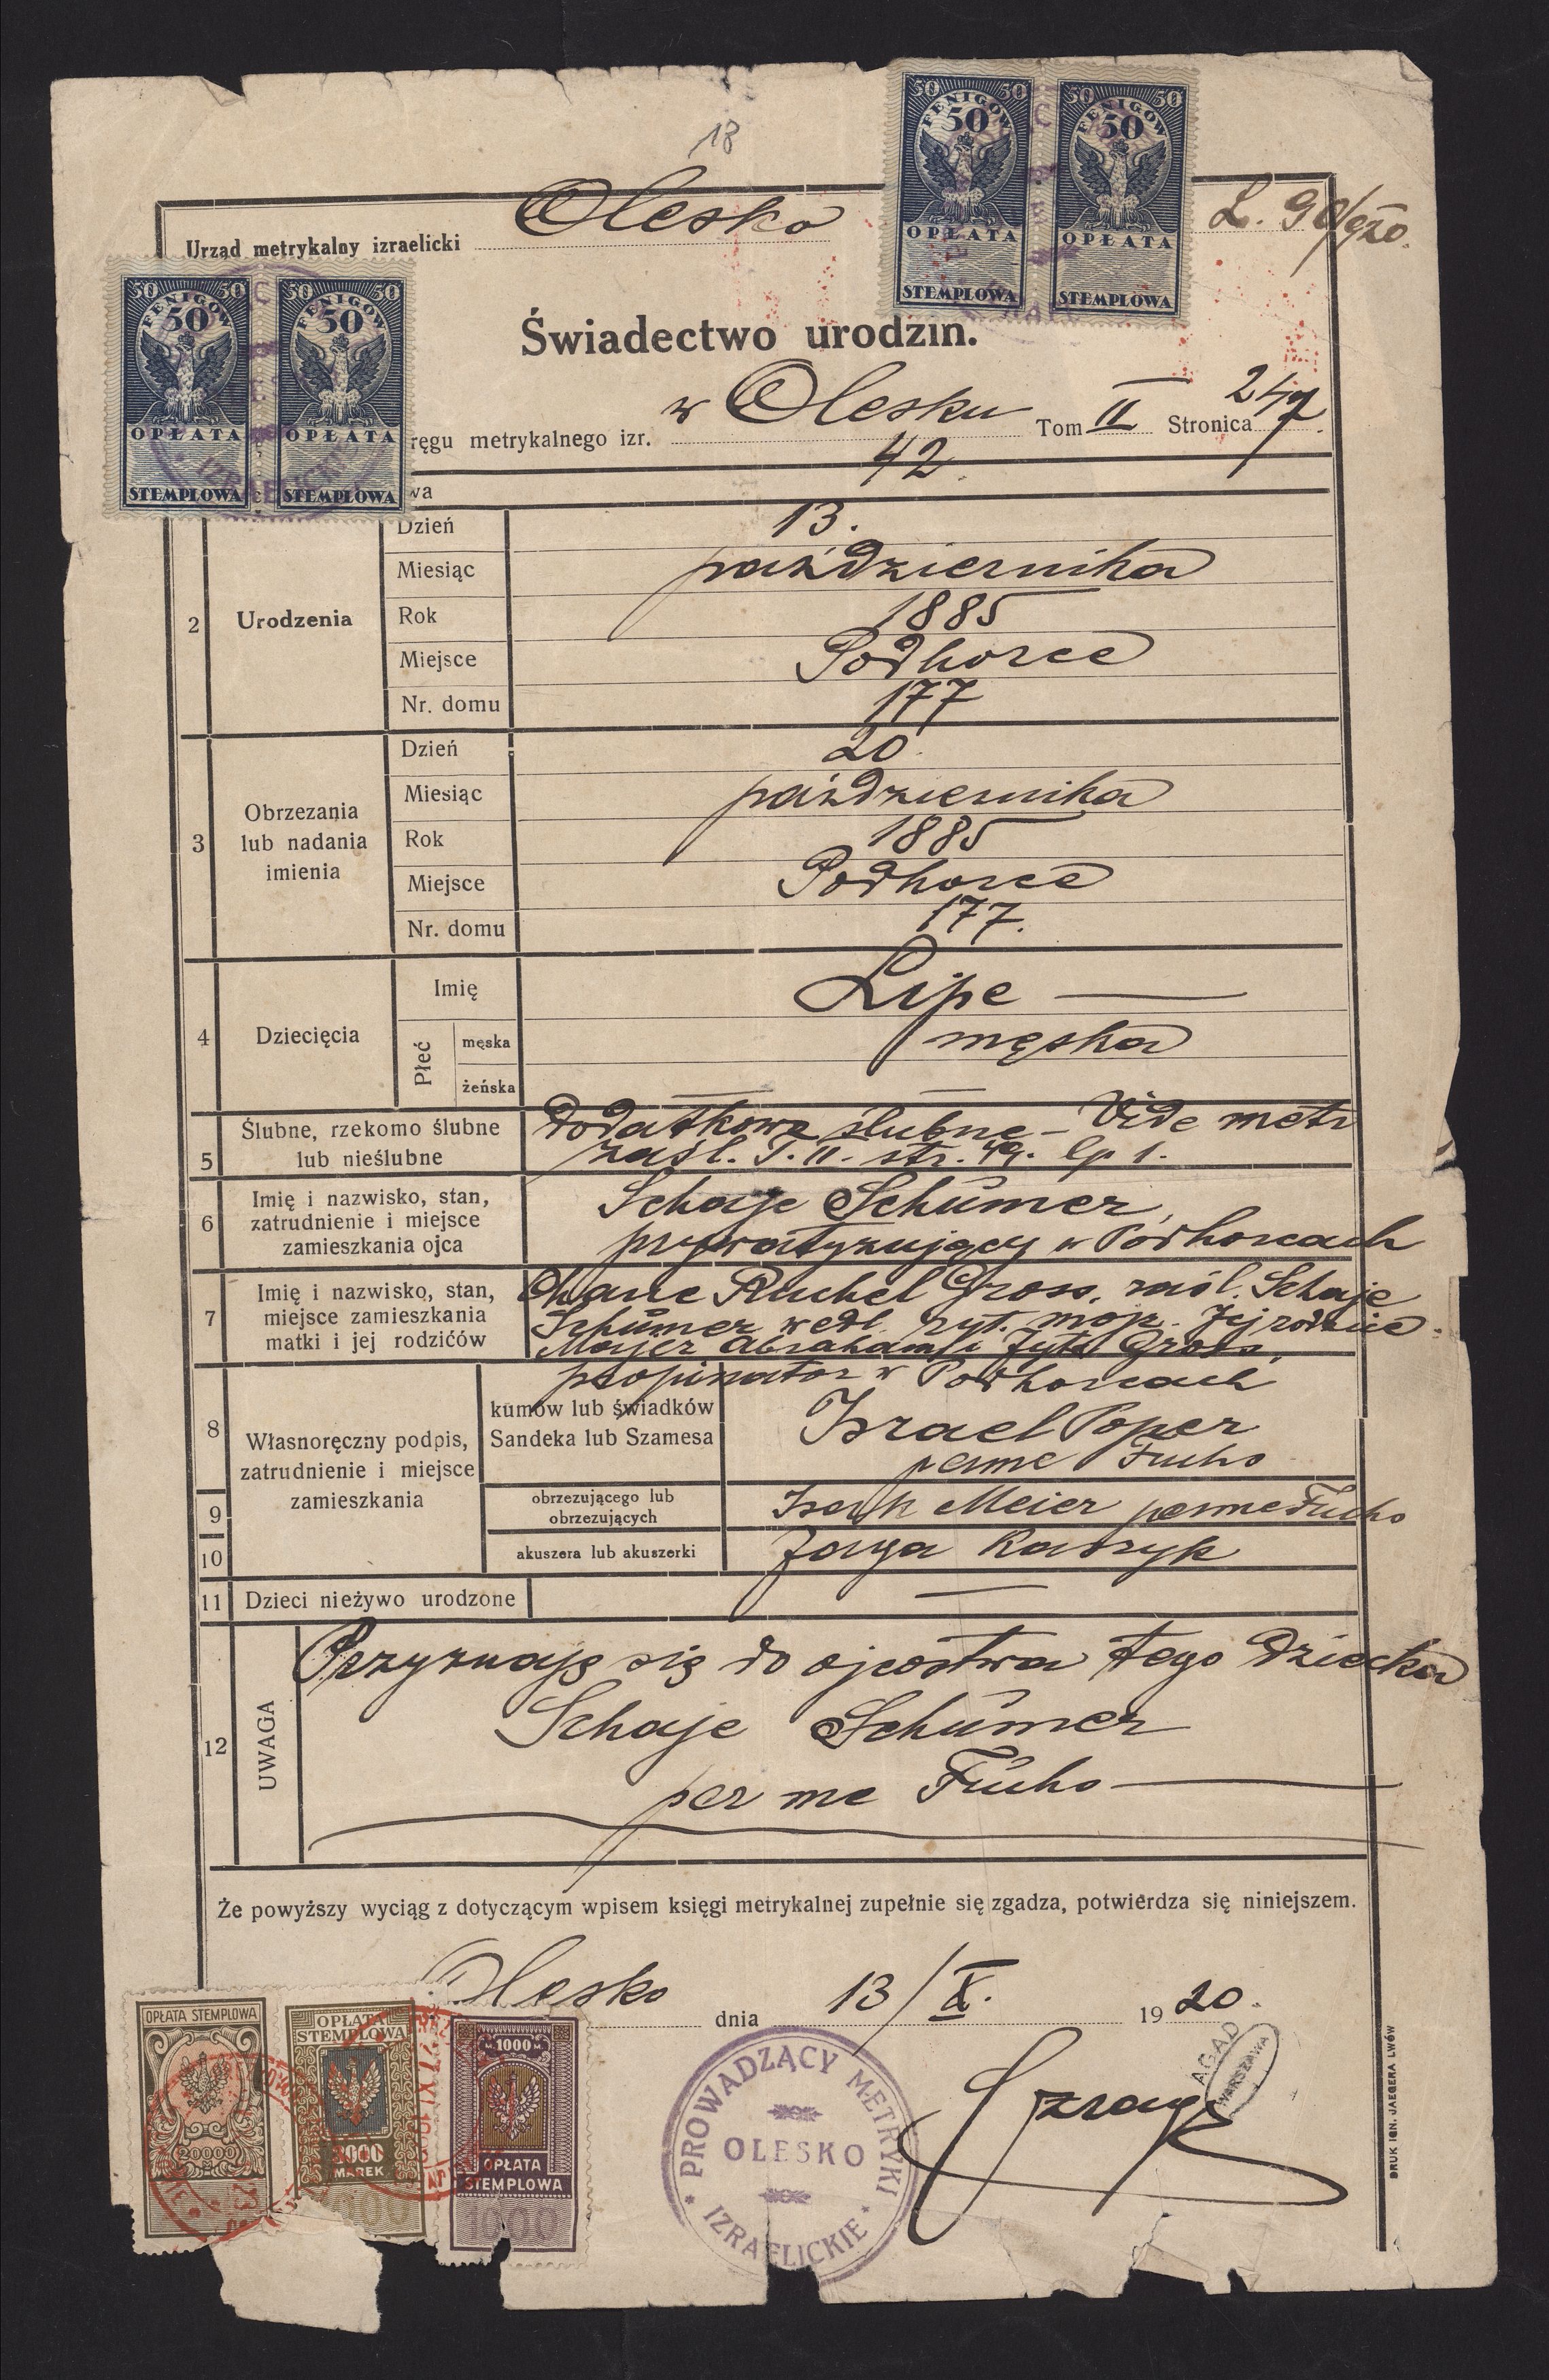 18
Urząd metrykalny izraelicki Olesko
L. 90/920.
50 50
FENIGÓW
50
OPŁATA
STEMPLOWA
50 50
FENIGÓW
50
OPŁATA
STEMPLOWA
50 50
FENIGÓW
50
OPŁATA
STEMPLOWA
50 50
FENIGÓW
50
OPŁATA
STEMPLOWA
Świadectwo urodzin.
ręgu metrykalnego izr. w Olesku Tom II Stronica 247.
wa 42.
2 Urodzenia
Dzień 13.
Miesiąc października
Rok 1885
Miejsce Podhorce
Nr. domu 177
3 Obrzezania lub nadania imienia
Dzień 20.
Miesiąc października
Rok 1885
Miejsce Podhorce
Nr. domu 177.
4 Dziecięcia
Imię Lipe —
Płeć męska męska
żeńska —
5 Ślubne, rzekomo ślubne lub nieślubne
Dodatkowo ślubne – Vide metr
zaśl. T. II. str. 49. lp 1.
6 Imię i nazwisko, stan, zatrudnienie i miejsce zamieszkania ojca
Schaje Schümer,
prywatyzujący w Podhorcach
7 Imię i nazwisko, stan, miejsce zamieszkania matki i jej rodzićów
Chane Ruchel Gross, zaśl. Schaje
Schümer wedl. ryt. mojż. Jej rodzice
Mojer Abraham i Gross,
propinator w Podhorcach
8 Własnoręczny podpis, zatrudnienie i miejsce zamieszkania
kumów lub świadków Sandeka lub Szamesa
Israel Poper
perme Fuchs
9 obrzezującego lub obrzezujących Meier perme Fuchs
10 akuszera lub akuszerki
11 Dzieci nieżywo urodzone —
12 UWAGA
Przyznaję się do ojcostwa tego dziecka
Schaje Schümer
per me Fuchs —
Że powyższy wyciąg z dotyczącym wpisem księgi metrykalnej zupełnie się zgadza, potwierdza się niniejszem.
Olesko dnia 13/X. 1920.
OPŁATA STEMPLOWA
20000
OPŁATA
STEMPLOWA
MAREK
M. 1000 M.
OPŁATA
STEMPLOWA
1000
PROWADZĄCY METRYKI
OLESKO
IZRAELICKIE
AGAD
WARSZAWA
DRUK IGN. JAEGERA LWÓW